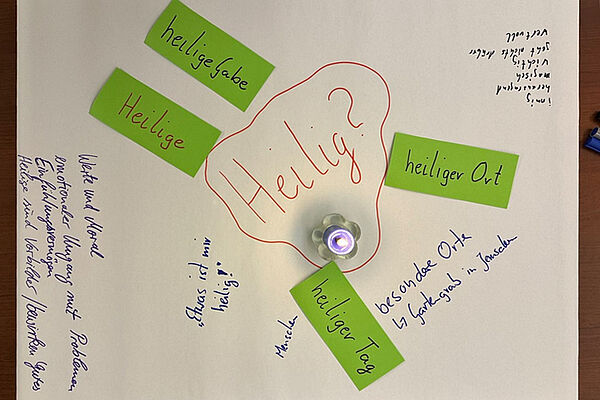 heilige Gabe
Heilige
Heilig?
heiliger Ort
heiliger Tag
innig
herausragend
magisch
wichtig
geht nichts drüber
wertvoll
Werte und Moral
emotionaler Umgang mit Problemen
Einfühlungsvermögen
Heilige sind Vorbilder / bewirken Gutes
ist mir
heilig!
Menschen
besondere Orte
↳ Gartengrab in Jerusalem